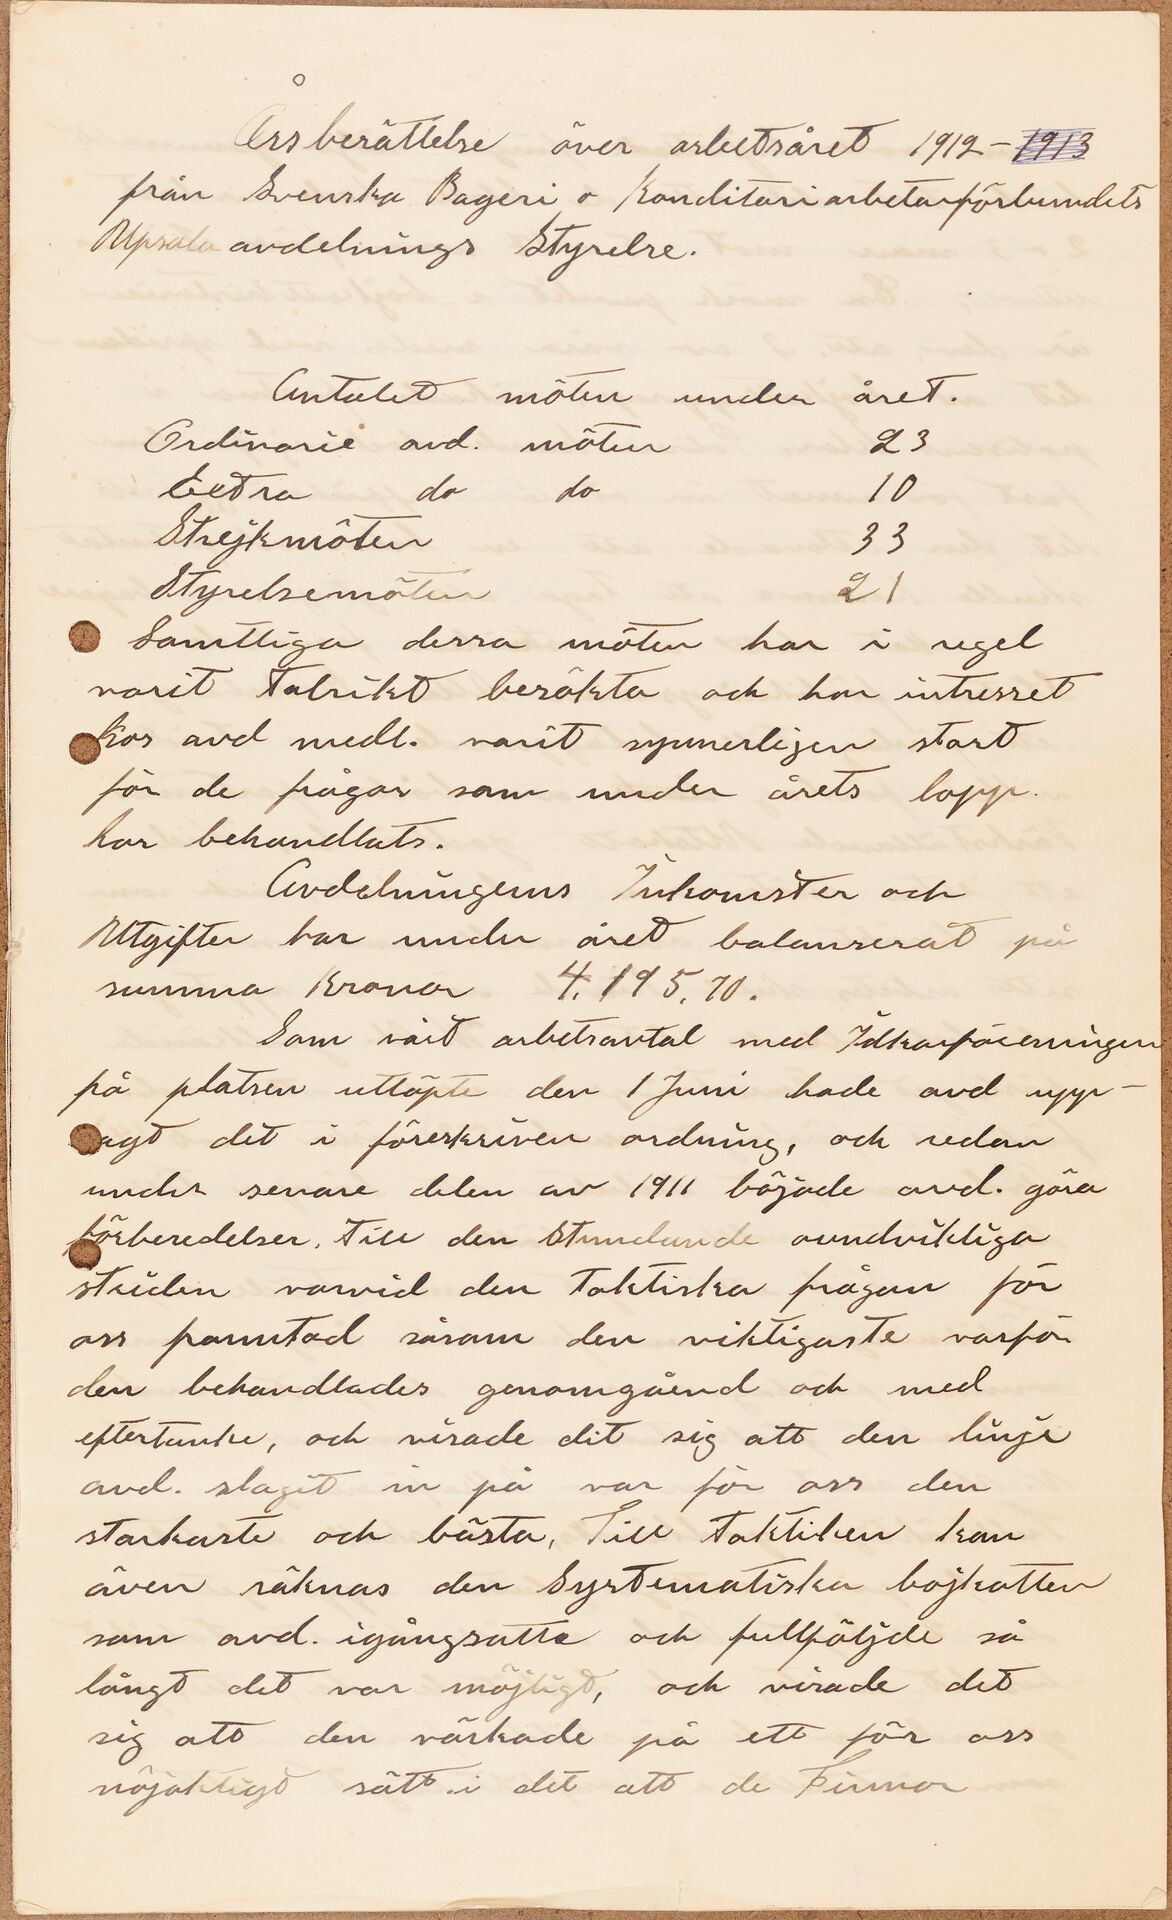 Årsberättelse över arbetsåret 1912–1913
från Svenska Bageri o Konditoriarbetarförbundets
Upsala avdelnings Styrelse.
Antalet möten under året.
Ordinarie avd. möten 23
Extra do do 10
Strejkmöten 33
Styrelsemöten 21
Samtliga dessa möten har i regel
varit talrikt besökta och har intresset
hos avd medl. varit synnerligen stort
för de frågor som under årets lopp
har behandlats.
Avdelningens Inkomster och
Utgifter har under året balanserat på
summa Kronor 4.195,70.
Som vårt arbetsavtal med Idkarföreningen
på platsen utlöpte den 1 Juni hade avd upp-
sagt det i föreskriven ordning, och redan
under senare delen av 1911 började avd. göra
förberedelser. till den stundande oundvikliga
striden varvid den taktiska frågan för
oss framstod såsom den viktigaste varför
den behandlades genomgåend och med
eftertanke, och visade det sig att den linje
avd. slagit in på var för oss den
starkaste och bästa, Till taktiken kan
även räknas den Systematiska bojkotten
som avd. igångsatte och fullföljde så
långt det var möjligt, och visade det
sig att den värkade på ett för oss
nöjaktigt sätt i det att de Firmor